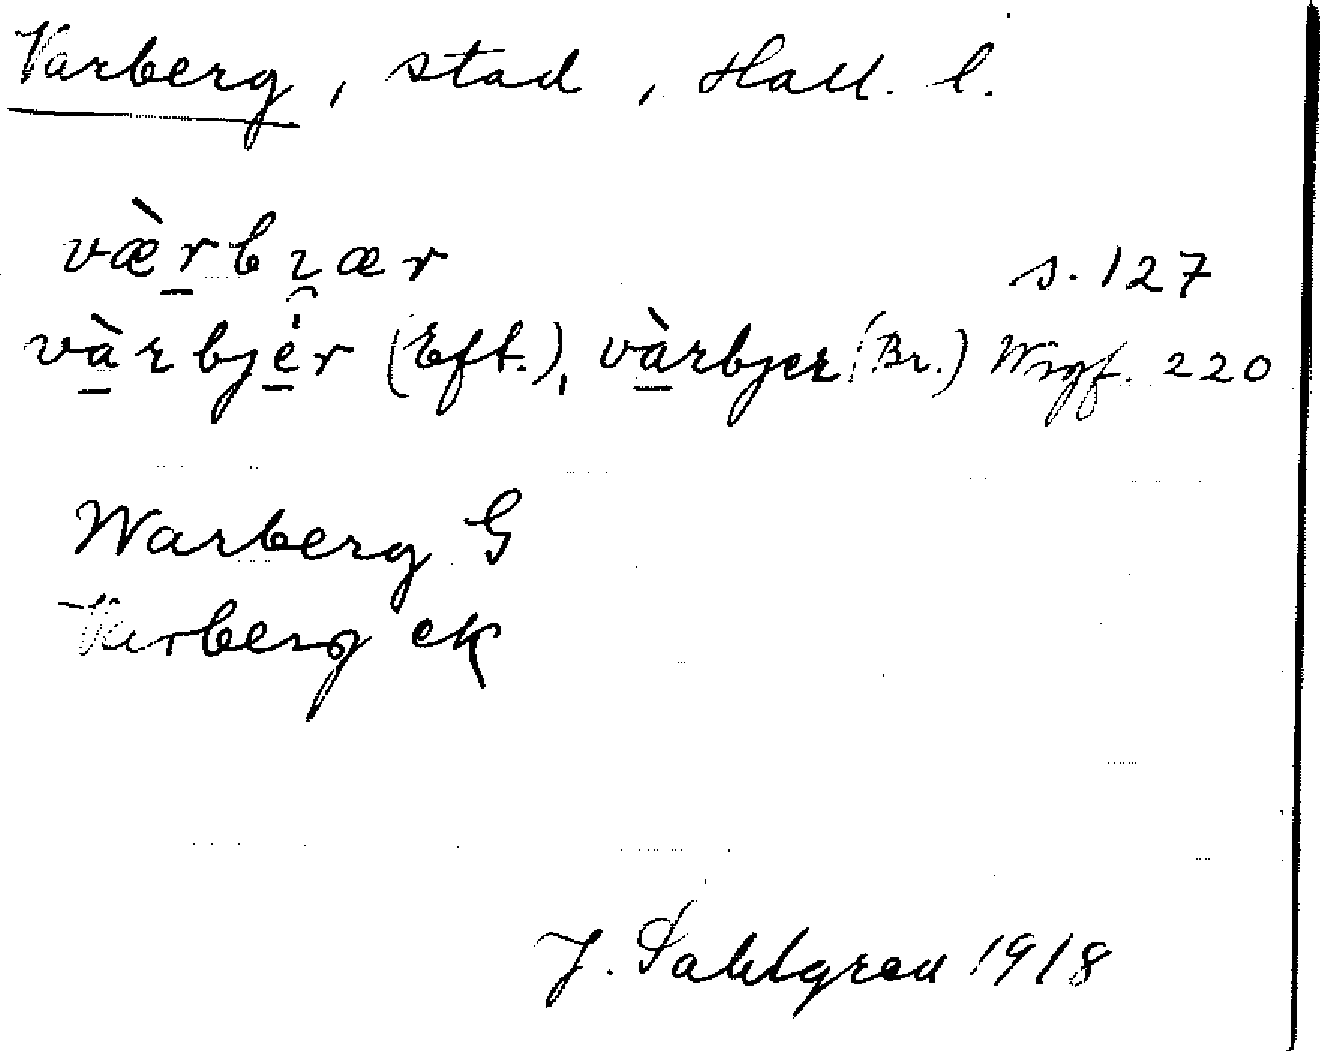 Varberg, stad, Hall. l.
væ̀r̲bıær s. 127
và̲rbjé̲r (Eft.), và̲rbjer (Br.) Wigf. 220
Warberg G
Varberg ek
J. Sahlgren 1918